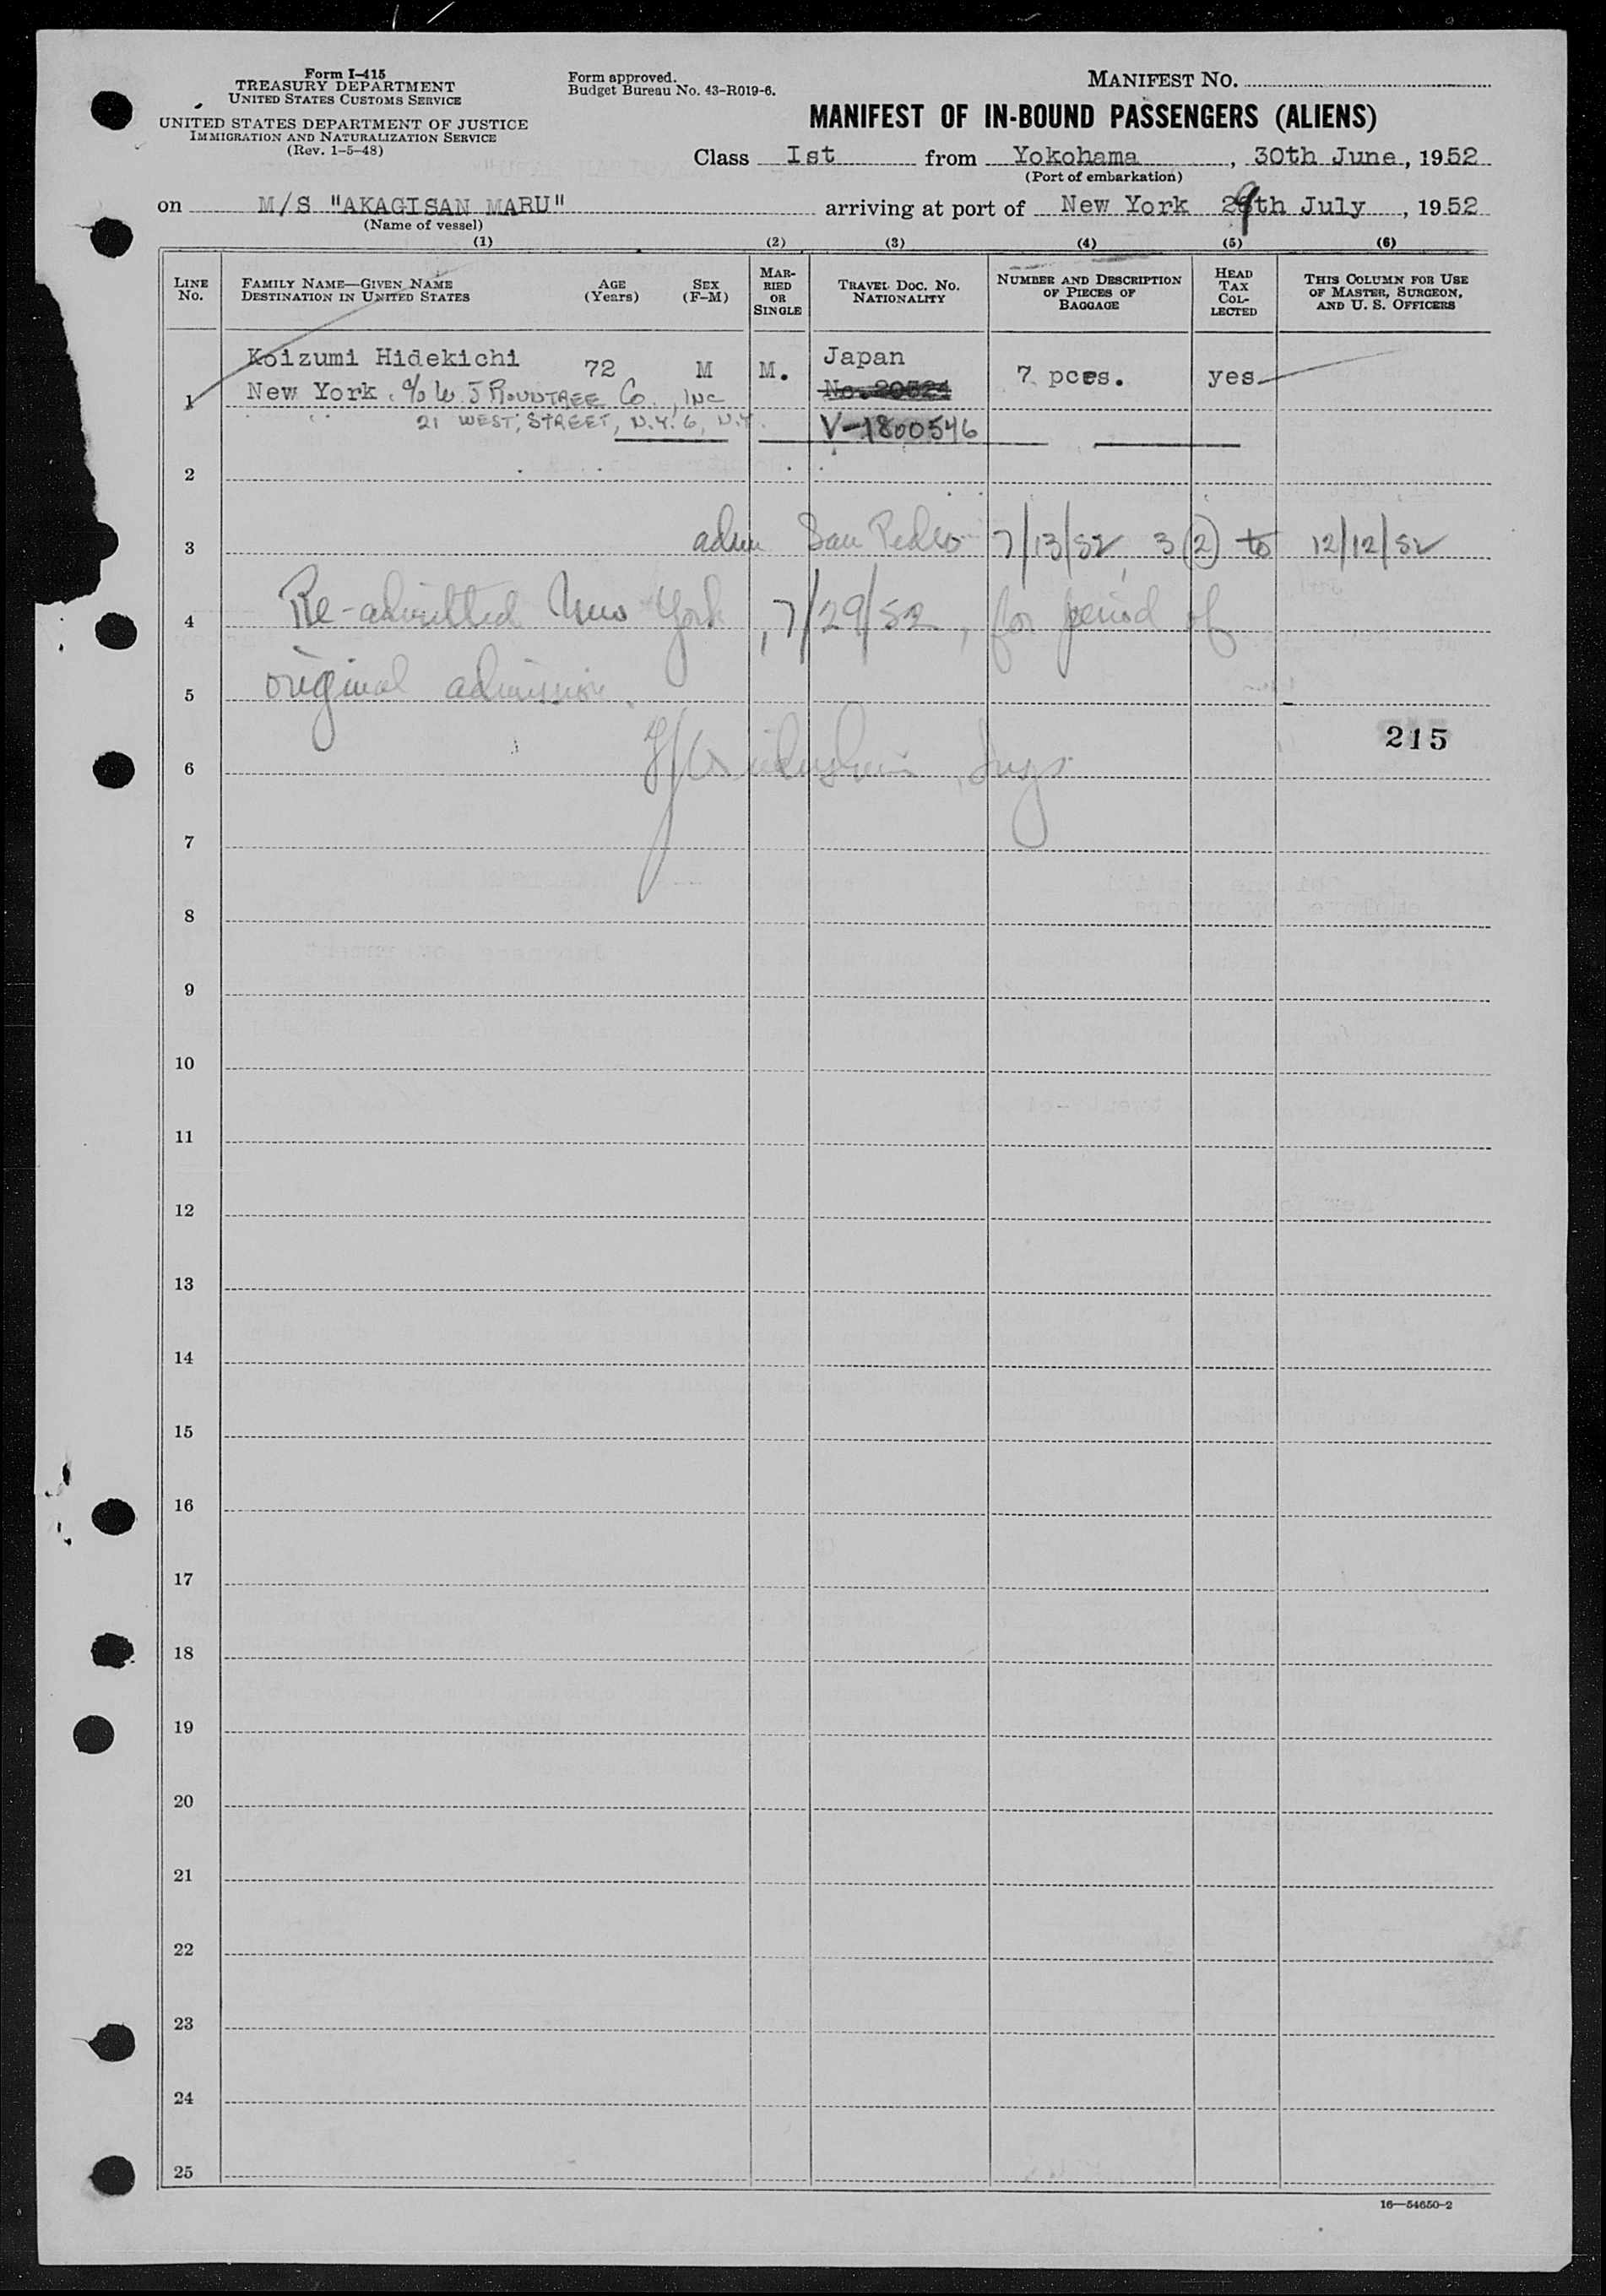 Form I-415
TREASURY DEPARTMENT
UNITED STATES CUSTOMS SERVICE
UNITED STATES DEPARTMENT OF JUSTICE
IMMIGRATION AND NATURALIZATION SERVICE
(Rev. 1-5-48)
Form approved.
Budget Bureau No. 43-R019-6.
MANIFEST NO.
MANIFEST OF IN-BOUND PASSENGERS (ALIENS)
Class Ist from Yokohama, 30th June, 1952
(Port of embarkation)
on M/S "AKAGISAN MARU" arriving at port of New York 29th July, 1952
(Name of vessel)
(1) (2) (3) (4) (5) (6)
LINE No.
FAMILY NAME—GIVEN NAME
DESTINATION IN UNITED STATES
AGE (Years)
SEX (F-M)
MARRIED OR SINGLE
TRAVEL DOC. NO.
NATIONALITY
NUMBER AND DESCRIPTION OF PIECES OF BAGGAGE
HEAD TAX COLLECTED
THIS COLUMN FOR USE OF MASTER, SURGEON, AND U. S. OFFICERS
1 Koizumi Hidekichi 72 M M. Japan 7 pces. yes
New York. c/o W J ROUNTREE Co., INC No. 20524
21 WEST, STREET, N.Y. 6, N.Y. V-1800546
2
3 adm San Pedro 7/13/52, 3(2) to 12/12/52
4 Re-admitted New York, 7/29/52, for period of
5 original admission.
215
6
7
8
9
10
11
12
13
14
15
16
17
18
19
20
21
22
23
24
25
16—54650-2